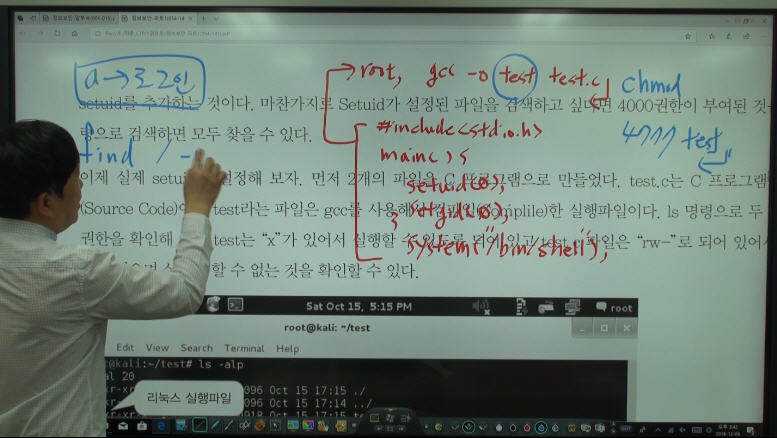 a→로그인
root, gcc -o test test.c
chmod
4777 test
#include<stdio.h>
main() {
setuid(0);
} setgid(0);
system("/bin/shell");
find / -
setuid를 추가하는 것이다. 마찬가지로 Setuid가 설정된 파일을 검색하고 싶다면 4000권한이 부여된 것
령으로 검색하면 모두 찾을 수 있다.
이제 실제 setu 설정해 보자. 먼저 2개의 파일을 C 프로그램으로 만들었다. test.c는 C 프로그램
(Source Code) test라는 파일은 gcc를 사용해 컴파일(Complile)한 실행파일이다. ls 명령으로 두
권한을 확인해 test는 "x"가 있어서 실행할 수 있도록 되어 있고 test.c 파일은 "rw-"로 되어 있어서
할 수 없는 것을 확인할 수 있다.
Sat Oct 15, 5:15 PM
root@kali: ~/test
Edit View Search Terminal Help
t@kali:~/test# ls -alp
al 20
096 Oct 15 17:15 ./
096 Oct 15 17:14 ../
리눅스 실행파일
오후 3:42